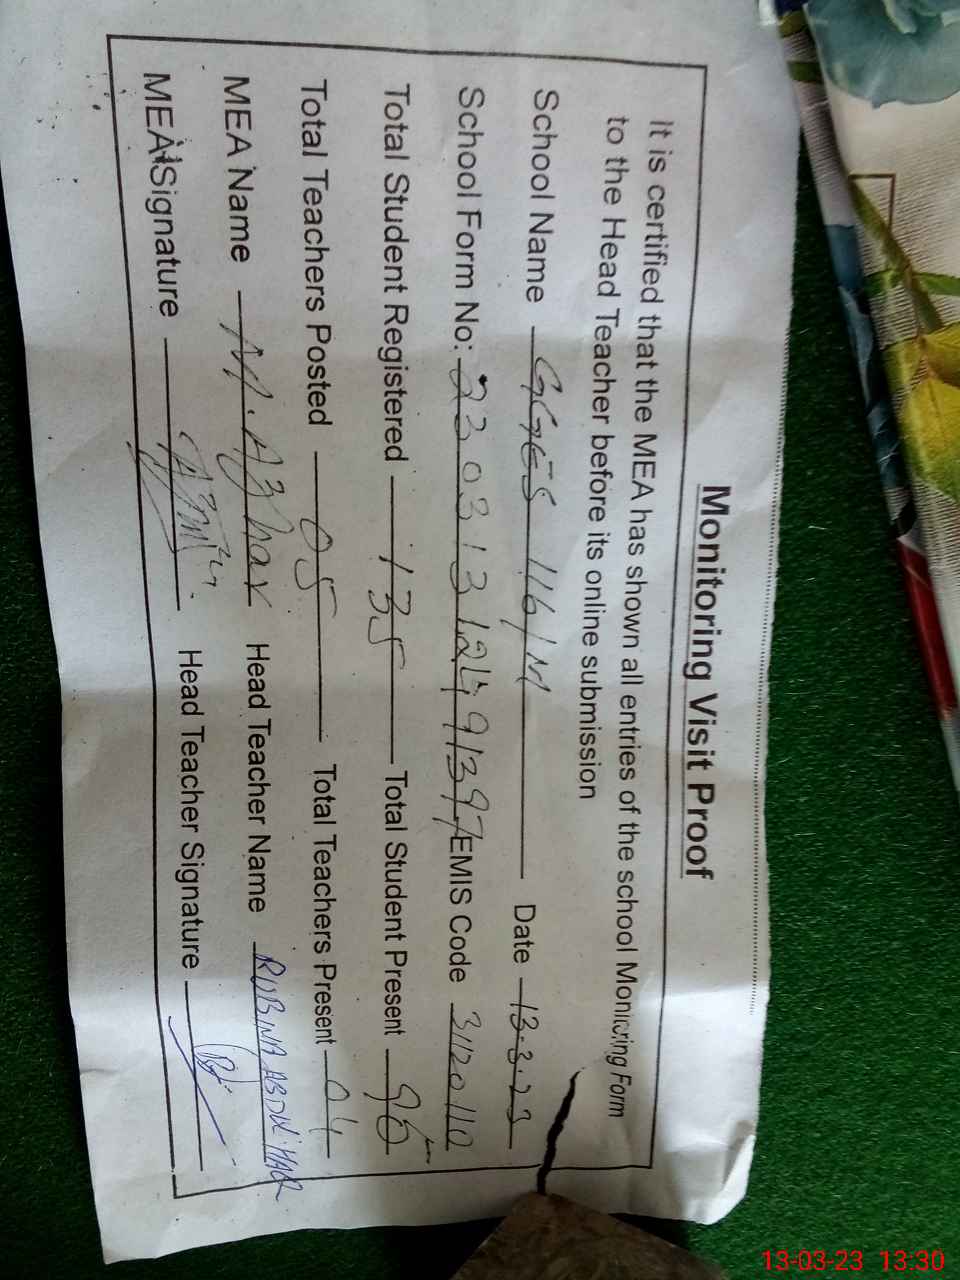 Monitoring Visit Proof
It is certified that the MEA has shown all entries of the school Monitoring Form
to the Head Teacher before its online submission
School Name GGES 116/M Date 13.3.23
School Form No: 23031312491397 EMIS Code 31120110
Total Student Registered 135 Total Student Present 96
Total Teachers Posted 05 Total Teachers Present 04
MEA Name M. Azhar Head Teacher Name RUBINA ABDUL HAQ
MEA Signature Head Teacher Signature
13-03-23 13:30